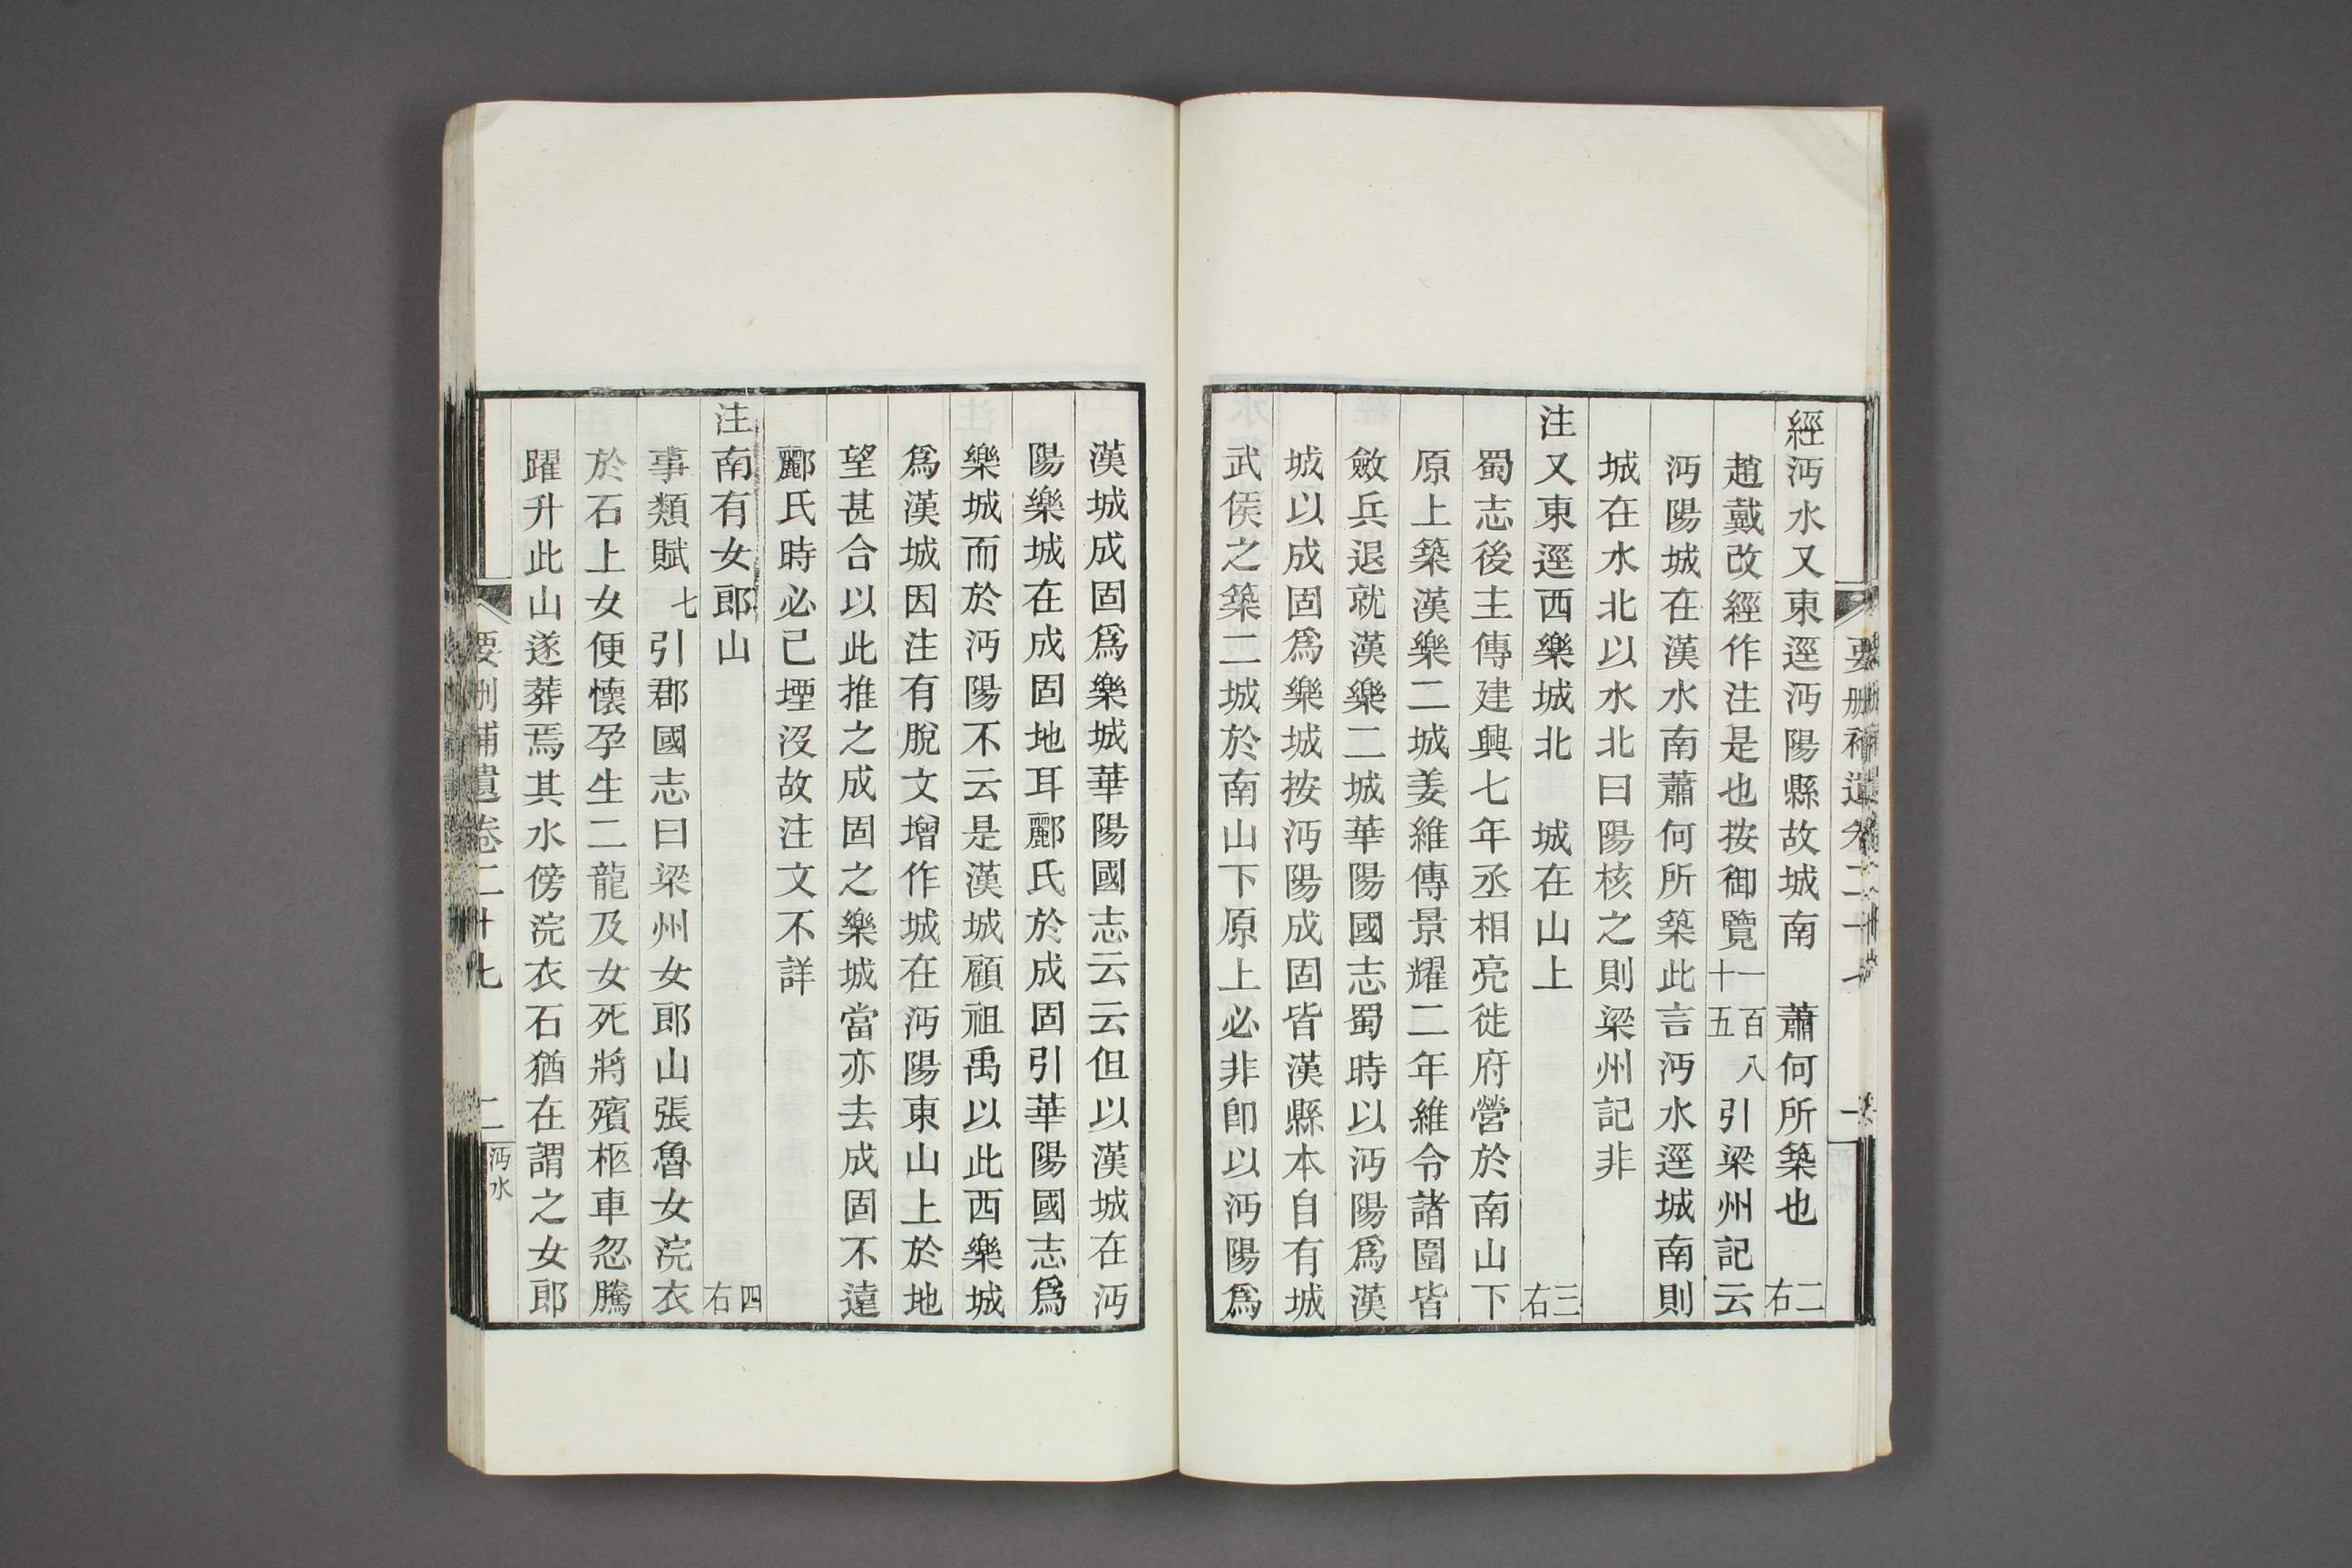 經沔水又東逕沔陽縣故城南　蕭何所築也　二右
趙戴改經作注是也按御覽一百八十五引梁州記云
沔陽城在漢水南蕭何所築此言沔水逕城南則
城在水北以水北曰陽核之則梁州記非
注又東逕西樂城北　城在山上　三右
蜀志後主傳建興七年丞相亮徙府營於南山下
原上築漢樂二城姜維傳景耀二年維令諸圍皆
斂兵退就漢樂二城華陽國志蜀時以沔陽爲漢
城以成固爲樂城按沔陽成固皆漢縣本自有城
武侯之築二城於南山下原上必非卽以沔陽爲
漢城成固爲樂城華陽國志云云但以漢城在沔
陽樂城在成固地耳酈氏於成固引華陽國志爲
樂城而於沔陽不云是漢城顧祖禹以此西樂城
爲漢城因注有脫文增作城在沔陽東山上於地
望甚合以此推之成固之樂城當亦去成固不遠
酈氏時必已堙沒故注文不詳
注南有女郎山　四右
事類賦七引郡國志曰梁州女郎山張魯女浣衣
於石上女便懷孕生二龍及女死將殯柩車忽騰
躍升此山遂葬焉其水傍浣衣石猶在謂之女郎
要刪補遺卷二十七　二　沔水